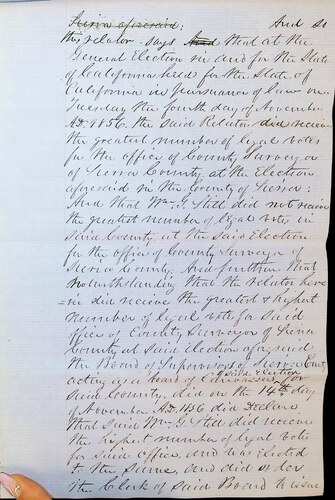 Sierra aforesaid; And so
this relator says that at the
General Election in and for the State
of California held for the State of
California in pursuance of law on
Tuesday the fourth day of November
A.D. 1856. the said Relator did receive
the greatest number of legal votes
for the office of County Surveyor
of Sierra County at the Election
aforesaid in the County of Sierra:
And that Wm. G. Still did not receive
the greatest number of legal votes in
said County at the said Election
for the office of County Surveyor of
Sierra County. And further that
notwithstanding that the relator here
=in did receive the greatest & highest
number of legal votes for said
office of County Surveyor of Sierra
County at said election aforesaid
the Board of Supervisors of Sierra County
acting as a board of Canvassers for
said election
said County did on the 14th day
of November A.D. 1856 did declare
that said Wm. G. Still did receive
the highest number of legal votes
for said office, and was elected
to the same, and did order
the Clerk of said Board to issue